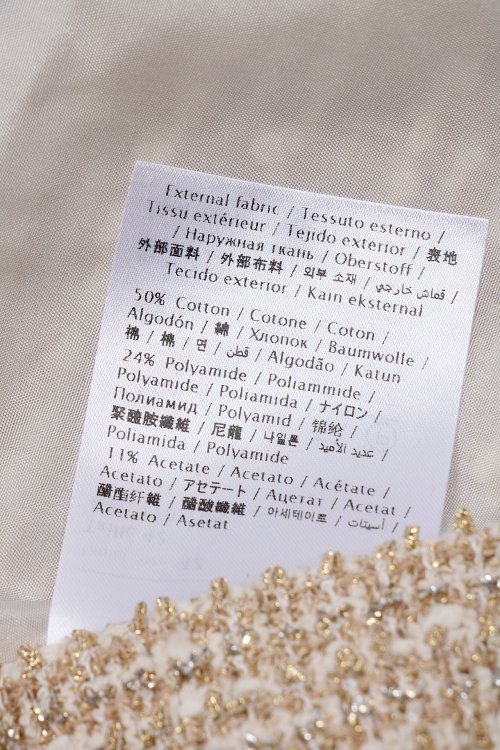 External fabric / Tessuto esterno /
Tissu extérieur / Tejido exterior / 表地
/ Наружная ткань / Oberstoff /
外部面料 / 外部布料 / 외부 소재 / قماش خارجي /
Tecido exterior / Kain eksternal
50% Cotton / Cotone / Coton /
Algodón / 綿 / Хлопок / Baumwolle /
棉 / 棉 / 면 / قطن / Algodão / Katun
24% Polyamide / Poliammide /
Polyamide / Poliamida / ナイロン /
Полиамид / Polyamid / 锦纶 /
聚醯胺纖維 / 尼龍 / 나일론 / عديد الأميد /
Poliamida / Polyamide
11% Acetate / Acetato / Acétate /
Acetato / アセテート / Ацетат / Acetat /
醋酯纤维 / 醋酸纖維 / 아세테이트 / أسيتات /
Acetato / Asetat